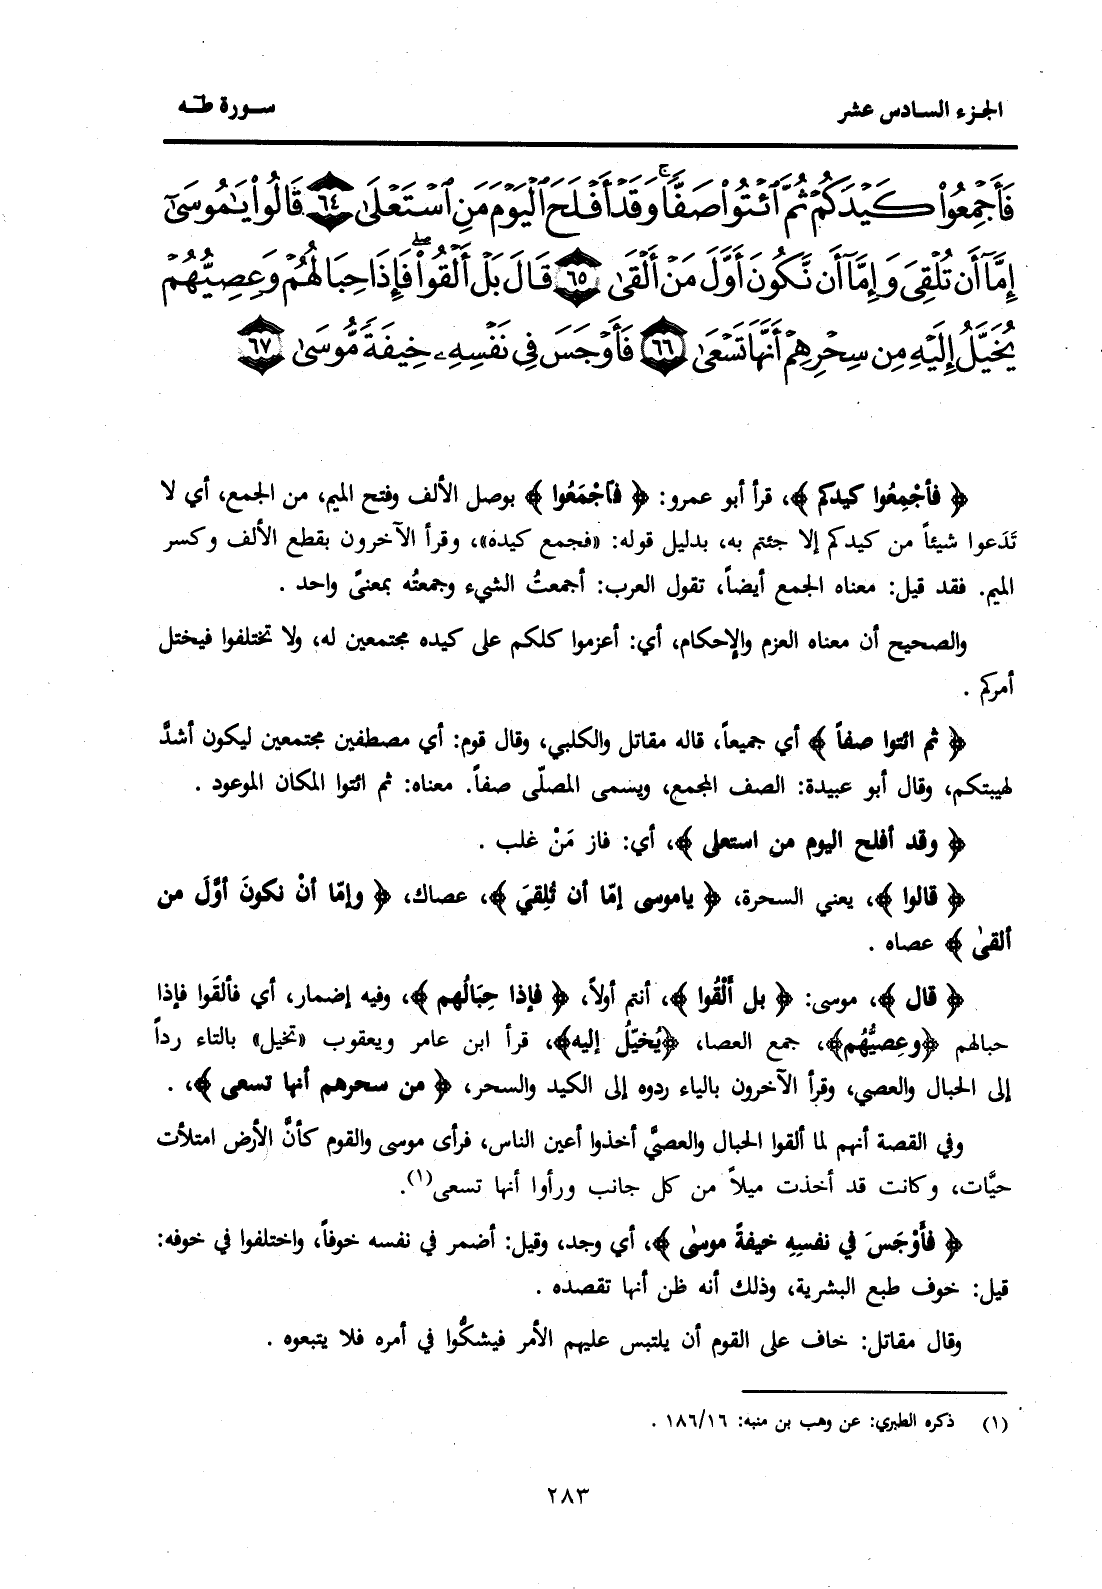 الجزء السادس عشر
سورة طه
فَأَجْمِعُوا۟ كَيْدَكُمْ ثُمَّ ٱئْتُوا۟ صَفًّا ۚ وَقَدْ أَفْلَحَ ٱلْيَوْمَ مَنِ ٱسْتَعْلَىٰ ٦٤ قَالُوا۟ يَـٰمُوسَىٰٓ
إِمَّآ أَن تُلْقِىَ وَإِمَّآ أَن نَّكُونَ أَوَّلَ مَنْ أَلْقَىٰ ٦٥ قَالَ بَلْ أَلْقُوا۟ ۖ فَإِذَا حِبَالُهُمْ وَعِصِيُّهُمْ
يُخَيَّلُ إِلَيْهِ مِن سِحْرِهِمْ أَنَّهَا تَسْعَىٰ ٦٦ فَأَوْجَسَ فِى نَفْسِهِۦ خِيفَةً مُّوسَىٰ ٦٧
﴿ فأجْمِعُوا كيدكم ﴾، قرأ أبو عمرو: ﴿ فاجْمَعُوا ﴾ بوصل الألف وفتح الميم، من الجمع، أي لا
تَدَعوا شيئاً من كيدكم إلا جئتم به، بدليل قوله: «فجمع كيده»، وقرأ الآخرون بقطع الألف وكسر
الميم. فقد قيل: معناه الجمع أيضاً، تقول العرب: أجمعتُ الشيء وجمعتُه بمعنىً واحد .
والصحيح أن معناه العزم والإحكام، أي: أعزموا كلكم على كيده مجتمعين له، ولا تختلفوا فيختل
أمركم .
﴿ ثم ائتوا صفاً ﴾ أي جميعاً، قاله مقاتل والكلبي، وقال قوم: أي مصطفين مجتمعين ليكون أشدَّ
لهيبتكم، وقال أبو عبيدة: الصف المجمع، ويسمى المصلّى صفاً. معناه: ثم ائتوا المكان الموعود .
﴿ وقد أفلح اليوم من استعلى ﴾، أي: فاز مَنْ غلب .
﴿ قالوا ﴾، يعني السحرة، ﴿ ياموسى إمّا أن تُلِقيَ ﴾، عصاك، ﴿ وإمّا أنْ نكونَ أوَّلَ من
ألقىٰ ﴾ عصاه .
﴿ قال ﴾، موسى: ﴿ بل أَلْقُوا ﴾، أنتم أولاً، ﴿ فإذا حِبَالُهم ﴾، وفيه إضمار، أي فألقَوا فإذا
حبالهم ﴿وعِصيُّهُم﴾، جمع العصا، ﴿يُخيّلُ إليه﴾، قرأ ابن عامر ويعقوب «تخيل» بالتاء رداً
إلى الحبال والعصي، وقرأ الآخرون بالياء ردوه إلى الكيد والسحر، ﴿ من سحرهم أنها تسعى ﴾، .
وفي القصة أنهم لما ألقوا الحبال والعصيَّ أخذوا أعين الناس، فرأى موسى والقوم كأنَّ الأرض امتلأت
حيَّات، وكانت قد أخذت ميلاً من كل جانب ورأوا أنها تسعى(١).
﴿ فأَوْجَسَ في نفسِهِ خيفةً موسىٰ ﴾، أي وجد، وقيل: أضمر في نفسه خوفاً، واختلفوا في خوفه:
قيل: خوف طبع البشرية، وذلك أنه ظن أنها تقصده .
وقال مقاتل: خاف على القوم أن يلتبس عليهم الأمر فيشكُّوا في أمره فلا يتبعوه .
(١) ذكره الطبري: عن وهب بن منبه: ١٨٦/١٦ .
٢٨٣